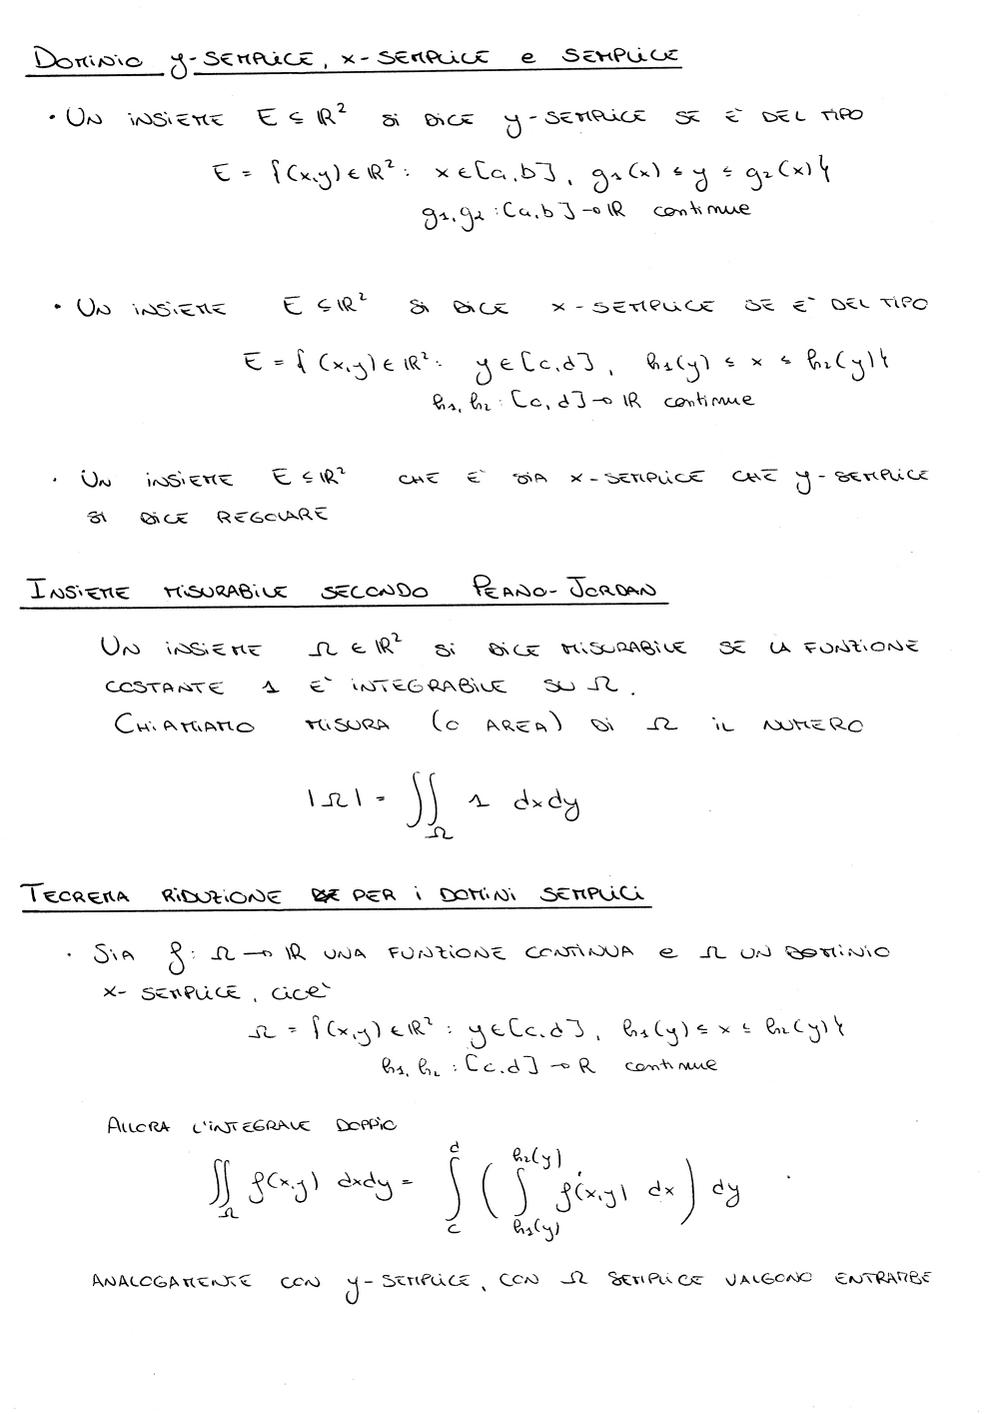 DOMINIO y-SEMPLICE, x-SEMPLICE e SEMPLICE
• UN INSIEME E ⊆ ℝ² SI DICE y-SEMPLICE SE E' DEL TIPO
E = {(x,y) ∈ ℝ² : x ∈ [a,b], g₁(x) ≤ y ≤ g₂(x)}
g₁, g₂ : [a,b] → ℝ continue
• UN INSIEME E ⊆ ℝ² SI DICE x-SEMPLICE SE E' DEL TIPO
E = {(x,y) ∈ ℝ² : y ∈ [c,d], h₁(y) ≤ x ≤ h₂(y)}
h₁, h₂ : [c,d] → ℝ continue
• UN INSIEME E ⊆ ℝ² CHE E' SIA x-SEMPLICE CHE y-SEMPLICE
SI DICE REGOLARE
INSIEME MISURABILE SECONDO PEANO-JORDAN
UN INSIEME Ω ∈ ℝ² SI DICE MISURABILE SE LA FUNZIONE
COSTANTE 1 E' INTEGRABILE SU Ω.
CHIAMIAMO MISURA (O AREA) DI Ω IL NUMERO
|Ω| = ∬_Ω 1 dxdy
TEOREMA RIDUZIONE PER I DOMINI SEMPLICI
• SIA f: Ω → ℝ UNA FUNZIONE CONTINUA e Ω UN DOMINIO
x-SEMPLICE, CIOE'
Ω = {(x,y) ∈ ℝ² : y ∈ [c,d], h₁(y) ≤ x ≤ h₂(y)}
h₁, h₂ : [c,d] → R continue
ALLORA L'INTEGRALE DOPPIO
∬_Ω f(x,y) dxdy = ∫_c^d ( ∫_{h₁(y)}^{h₂(y)} f(x,y) dx ) dy
ANALOGAMENTE CON y-SEMPLICE, CON Ω SEMPLICE VALGONO ENTRAMBE